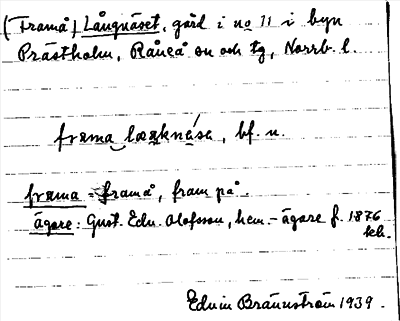 (Framå) Långnäset, gård i no 11 i byn
Prästholm, Råneå sn och tg, Norrb. l.
frama, bf. n.
frama = framå, fram på.
ägare: Gust. Edv. Olofsson, hem.-ägare f. 1876
Edvin Brännström 1939.